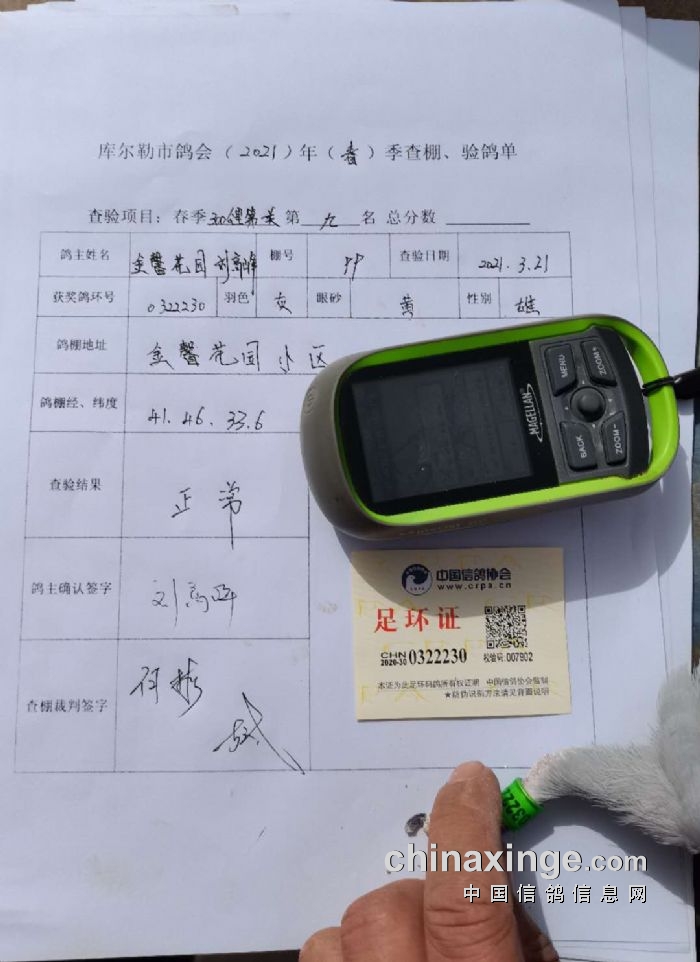 库尔勒市鸽会（2021）年（春）季查棚、验鸽单
查验项目：春季 第 九 名 总分数
鸽主姓名 金馨花园 刘高峰 棚号 查验日期 2021.3.21
获奖鸽环号 0322230 羽色 灰 眼砂 黄 性别 雄
鸽棚地址 金馨花园小区
鸽棚经、纬度 41.46.33.6
查验结果 正常
鸽主确认签字 刘高峰
查棚裁判签字
MENU
ZOOM+
MAGELLAN
BACK
ZOOM-
中国信鸽协会
www.crpa.cn
足环证
CHN
2020-30 0322230 校验码：007902
本证为此足环码鸽所有权证明 中国信鸽协会监制
★防伪识别方法请见背面说明
chinaxinge.com
中国信鸽信息网